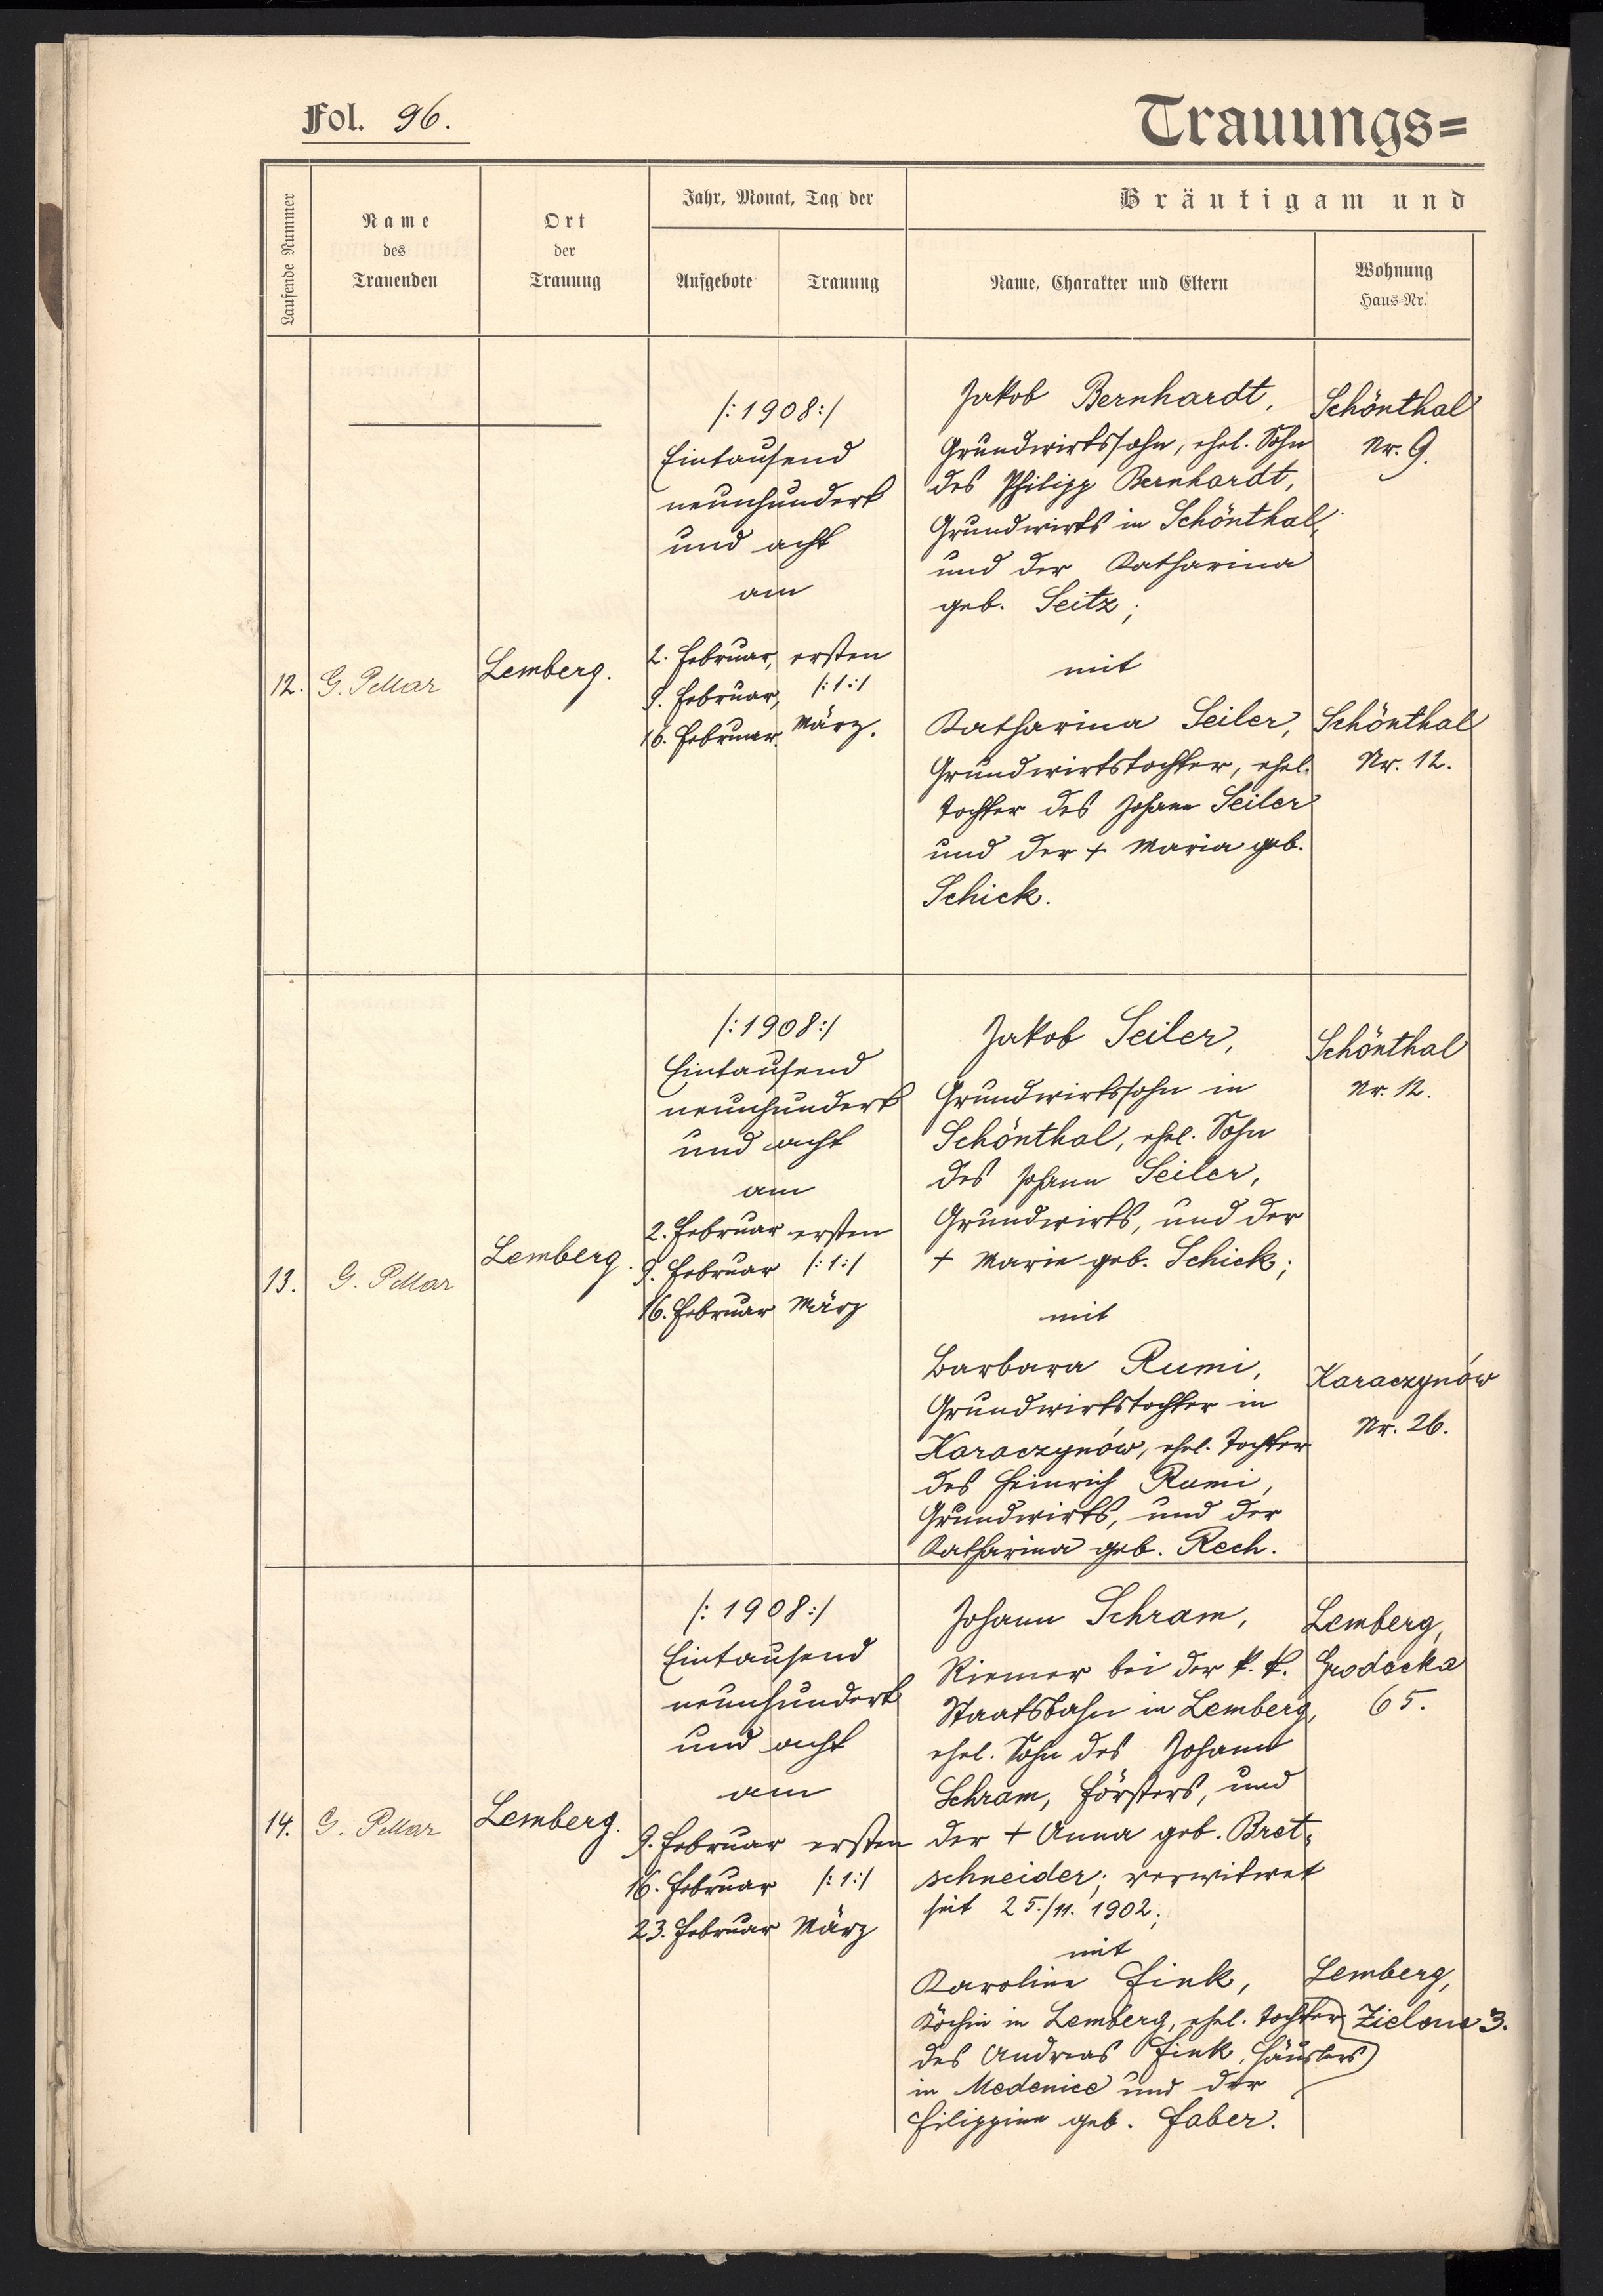 Fol. 96.
Trauungs=
Laufende Nummer
Name
des
Trauenden
Ort
der
Trauung
Jahr, Monat, Tag der
Aufgebote
Trauung
Bräutigam und
Name, Charakter und Eltern
Wohnung
Haus-Nr.
12.
G. Pellar
Lemberg.
/:1908:/
Eintausend
neunhundert
und acht
am
2. Februar,
9. Februar,
16. Februar.
ersten
/:1:/
März.
Jakob Bernhardt,
Grundwirtssohn, ehel. Sohn
des Philipp Bernhardt,
Grundwirts in Schönthal,
und der Katharina
geb. Seitz;
mit
Katharina Seiler,
Grundwirtstochter, ehel.
Tochter des Johann Seiler
und der + Maria geb.
Schick.
Schönthal
Nr. 9.
Schönthal
Nr. 12.
13.
G. Pellar
Lemberg.
/:1908:/
Eintausend
neunhundert
und acht
am
2. Februar
9. Februar
16. Februar
ersten
/:1:/
März
Jakob Seiler,
Grundwirtssohn in
Schönthal, ehel. Sohn
des Johann Seiler,
Grundwirts, und der
+ Marie geb. Schick;
mit
Barbara Rumi,
Grundwirtstochter in
Karaczynów, ehel. Tochter
des Heinrich Rumi,
Grundwirts, und der
Katharina geb. Rech.
Schönthal
Nr. 12.
Karaczynów
Nr. 26.
14.
G. Pellar
Lemberg.
/:1908:/
Eintausend
neunhundert
und acht
am
9. Februar
16. Februar
23. Februar
ersten
/:1:/
März
Johann Schram,
Riemer bei der k. k.
Staatsbahn in Lemberg,
ehel. Sohn des Johann
Schram, Försters, und
der + Anna geb. Bret=
schneider; verwitwet
seit 25./11. 1902;
mit
Karoline Fink,
Köchin in Lemberg, ehel. Tochter
des Andreas Fink, Häuslers
in Medenice und der
Filippine geb. Faber.
Lemberg,
Grodecka
65.
Lemberg,
Zielona 3.